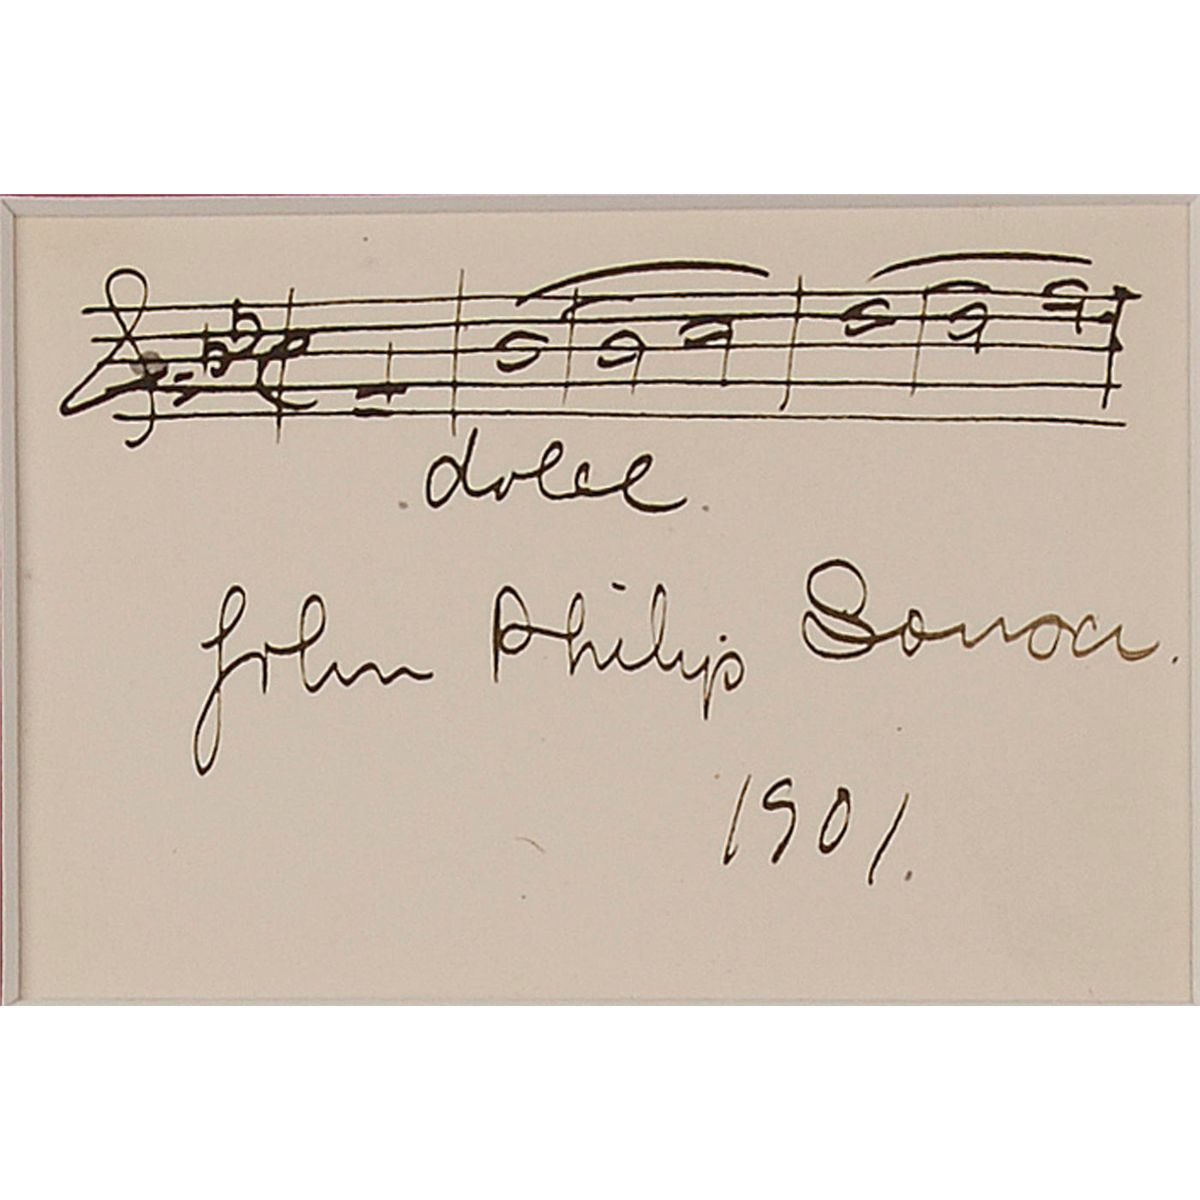 dolce
John Philip Sousa.
1901.